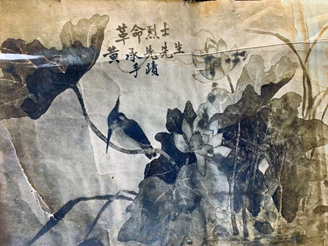 革命烈士
黄承先先生
手蹟